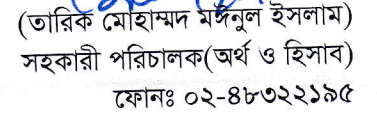 (তারিক মোহাম্মদ মঈনুল ইসলাম)
সহকারী পরিচালক(অর্থ ও হিসাব)
ফোনঃ ০২-৪৮৩২২১৯৫